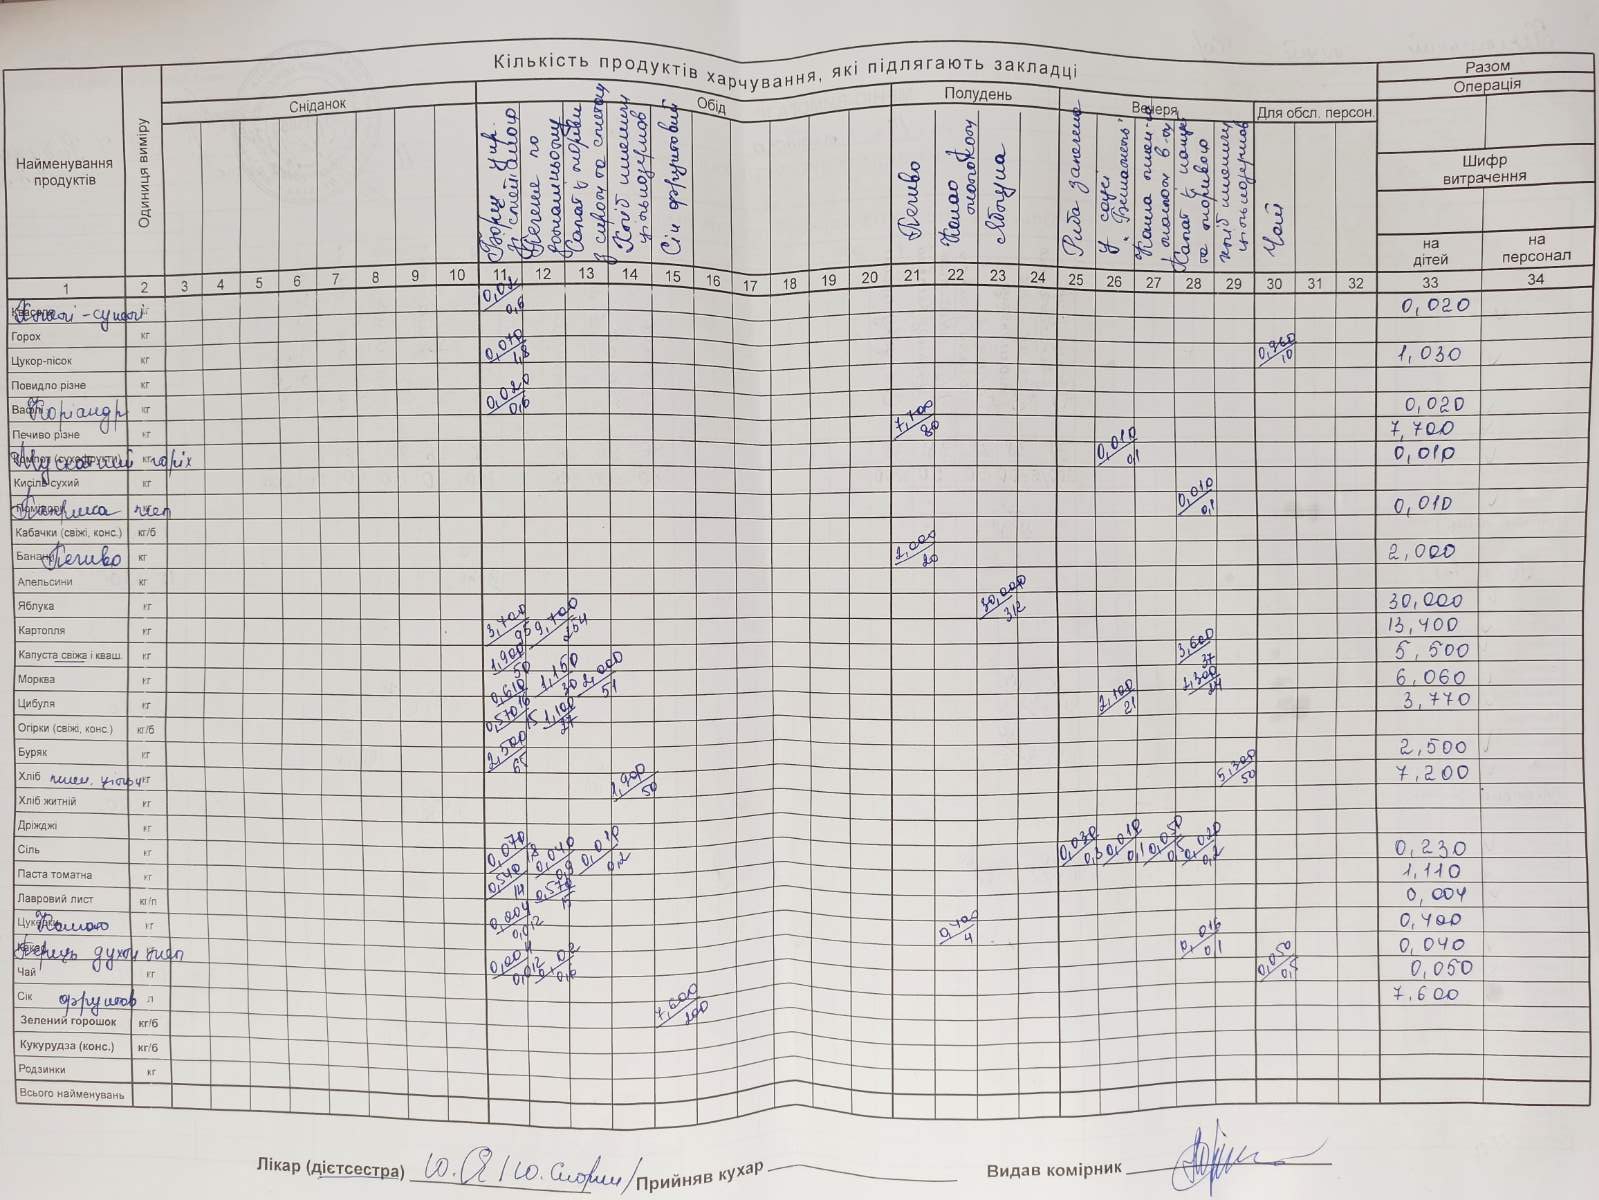 Кількість продуктів харчування, які підлягають закладці
Разом
Операція
Найменування продуктів
Одиниця виміру
Сніданок
Обід
Полудень
Вечеря
Для обсл. персон.
Шифр витрачення
на дітей
на персонал
Борщ укр. зі сметаною
Печеня по домашньому
Салат з моркви
Хліб пшеничн цільнозернов
Сік фруктовий
Печиво
Какао з молоком
Яблуна
Риба запечена
у соусі "Бешамель"
Каша
Салат з капус та моркви
хліб пшеничн цільнозернов
Чай
1 2 3 4 5 6 7 8 9 10 11 12 13 14 15 16 17 18 19 20 21 22 23 24 25 26 27 28 29 30 31 32 33 34
Квасоля Хмелі-сунелі кг 0,6 0,020
Горох кг
Цукор-пісок кг 0,070/1,8 0,960/10 1,030
Повидло різне кг
Вафлі Коріандр кг 0,020/0,6 0,020
Печиво різне кг 7,700/80 7,700
Компот (сухофрукти) Мускатний горіх кг 0,010/0,1 0,010
Кисіль сухий кг
Паприка мел 0,010/0,1 0,010
Кабачки (свіжі, конс.) кг/б
Банани Печиво кг 2,000/20 2,000
Апельсини кг
Яблука кг 30,000/312 30,000
Картопля кг 3,700/95 9,700/254 13,400
Капуста свіжа і кваш. кг 1,900/50 3,600/37 5,500
Морква кг 0,610/16 1,150/30 2,000/51 2,300/24 6,060
Цибуля кг 0,570/15 1,100/27 2,100/21 3,770
Огірки (свіжі, конс.) кг/б
Буряк кг 2,500/65 2,500
Хліб пшен. кг 1,900/50 5,300/50 7,200
Хліб житній кг
Дріжджі кг
Сіль кг 0,070/1,8 0,040/0,9 0,010/0,2 0,030/0,3 0,010/0,1 0,050/0,5 0,020/0,2 0,230
Паста томатна кг 0,540/14 0,570/15 1,110
Лавровий лист кг/п 0,004/0,012 0,004
Какао кг 0,400/4 0,400
Перець духм мел 0,004/0,012 0,02/0,6 0,016/0,1 0,040
Чай кг 0,050/0,5 0,050
Сік фруктов л 7,600/200 7.600
Зелений горошок кг/б
Кукурудза (конс.) кг/б
Родзинки кг
Всього найменувань
Лікар (дієтсестра) Прийняв кухар Видав комірник